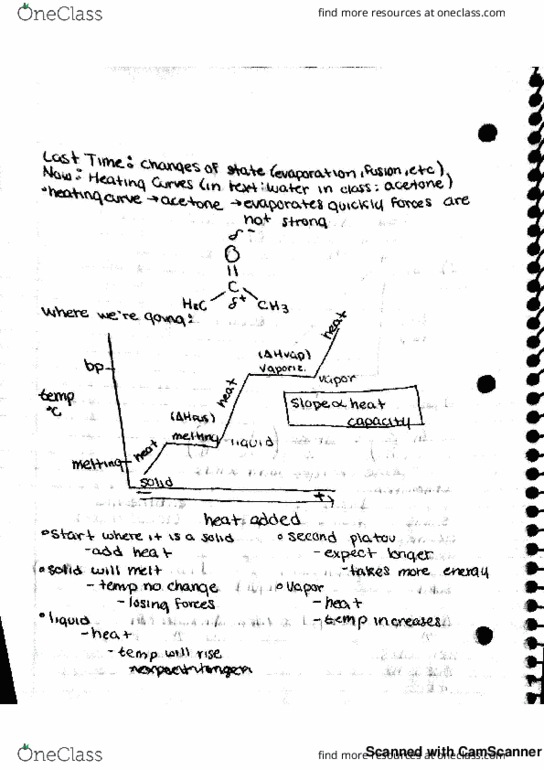 OneClass
find more resources at oneclass.com
Last Time: changes of state (evaporation, fusion, etc)
Now: Heating Curves (in text: water in class: acetone)
• heating curve → acetone → evaporates quickly forces are
not strong
δ-
O
||
C
H3C δ+ CH3
where we're going:
heat
(ΔHvap)
vaporiz.
bp
vapor
heat
temp
°C
slope α heat
capacity
(ΔHfus)
melting
liquid
heat
melting
solid
+
heat added
• start where it is a solid
- add heat
• solid will melt
- temp no change
- losing forces
• liquid
- heat
- temp will rise
• second platou
- expect longer
- takes more energy
• vapor
- heat
- temp increases
OneClass
find more resources at oneclass.com
Scanned with CamScanner